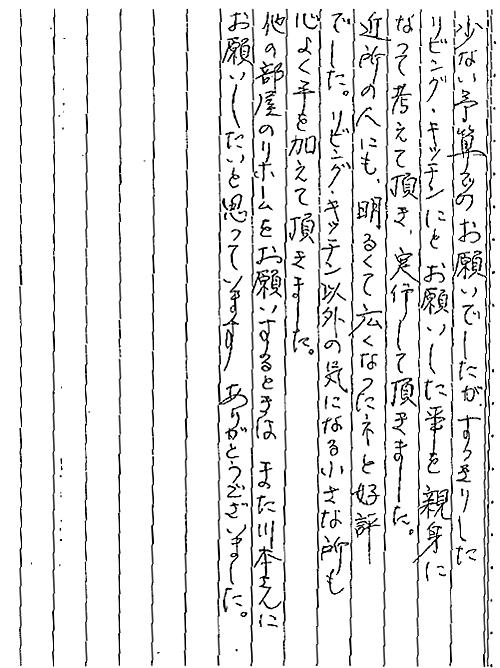 少ない予算でのお願いでしたが、すっきりした
リビング・キッチンにとお願いした事を親身に
なって考えて頂き、実行して頂きました。
近所の人にも、明るくて広くなったネと好評
でした。リビング・キッチン以外の気になる小さな所も
心よく手を加えて頂きました。
他の部屋のリホームをお願いするときは また川本さんに
お願いしたいと思っています ありがとうございました。